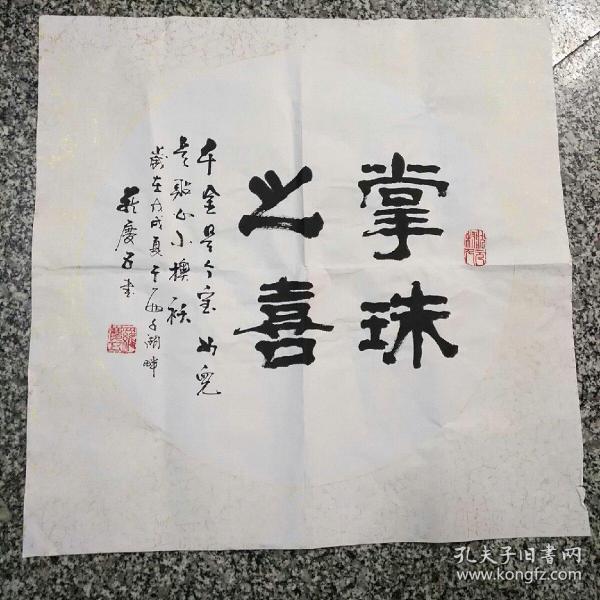 掌珠
之喜
千金是个宝 女儿
是贴心小棉袄
岁在戊戌夏于西子湖畔
庆云书
孔夫子旧书网
www.kongfz.com